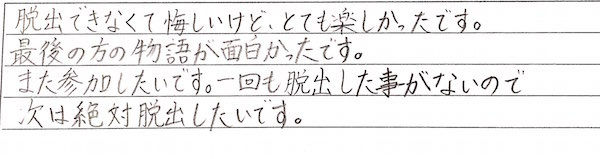 脱出できなくて悔しいけど、とても楽しかったです。
最後の方の物語が面白かったです。
また参加したいです。一回も脱出した事がないので
次は絶対脱出したいです。